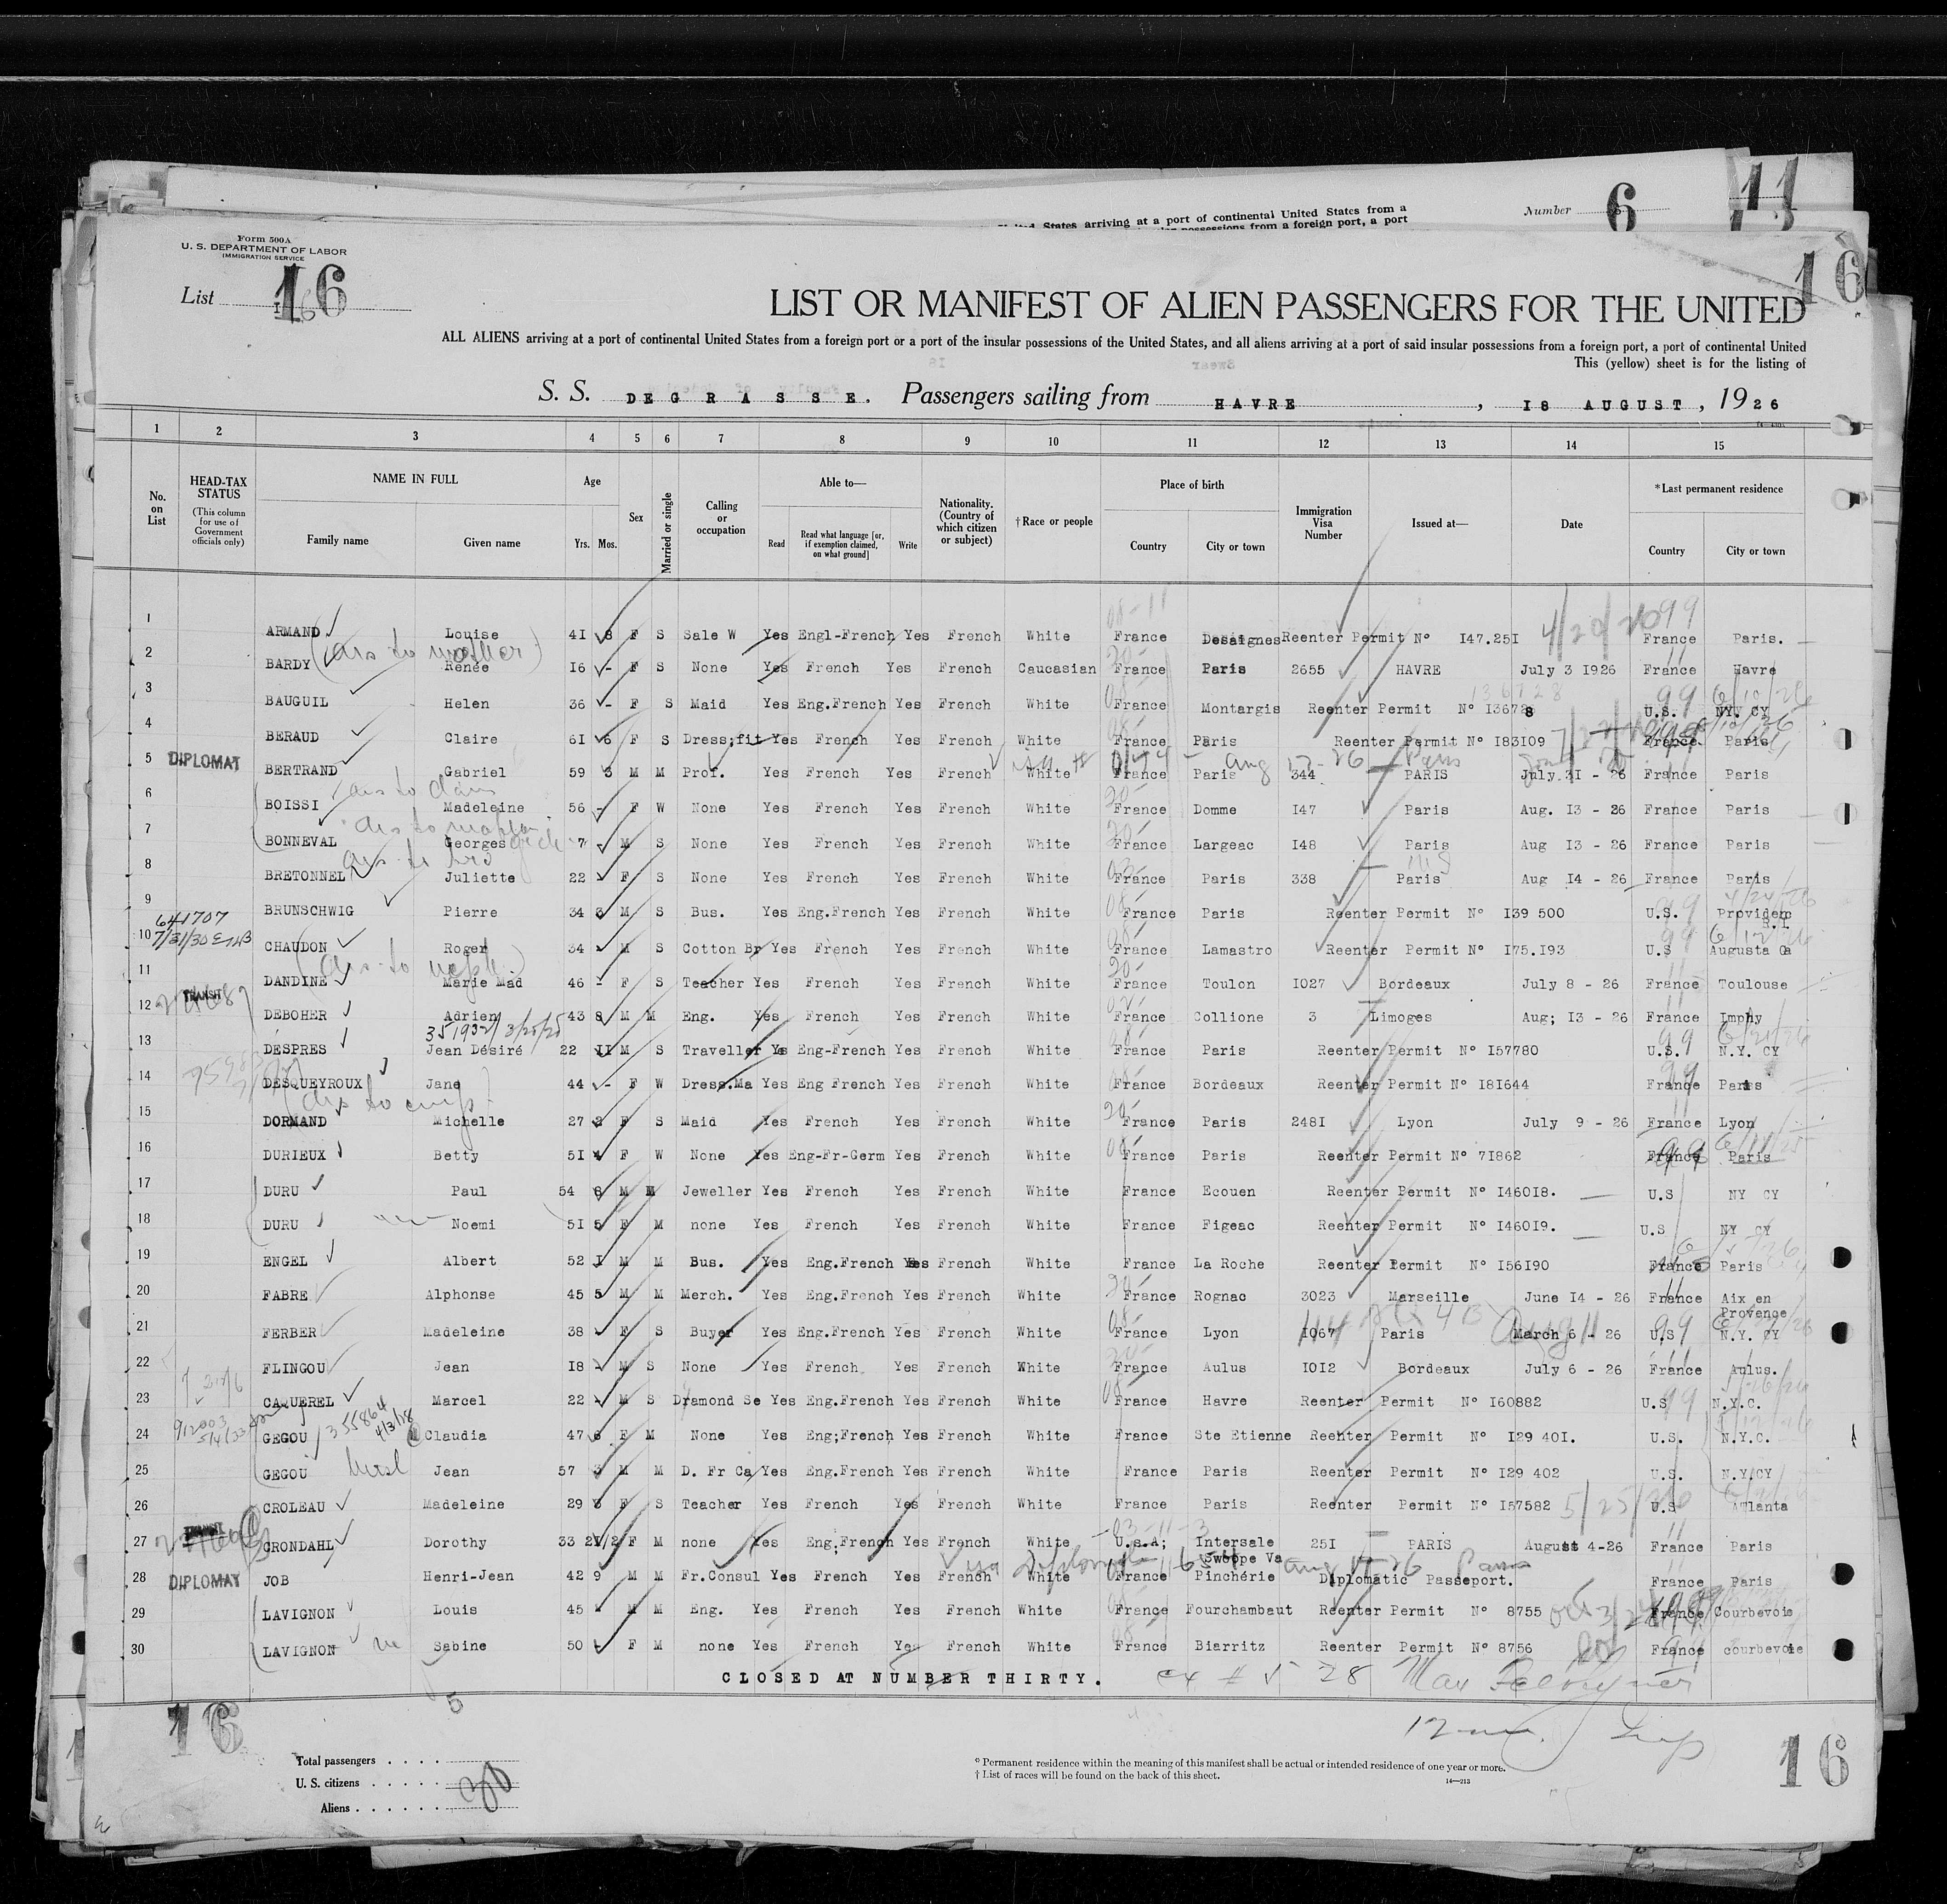 States arriving at a port of continental United States from a
possessions from a foreign port, a port
Number 6
11
Form 500A
U. S. DEPARTMENT OF LABOR
IMMIGRATION SERVICE
List 16
16
LIST OR MANIFEST OF ALIEN PASSENGERS FOR THE UNITED
ALL ALIENS arriving at a port of continental United States from a foreign port or a port of the insular possessions of the United States, and all aliens arriving at a port of said insular possessions from a foreign port, a port of continental United
This (yellow) sheet is for the listing of
S. S. DE GRASSE. Passengers sailing from HAVRE, I8 AUGUST, 1926
1 2 3 4 5 6 7 8 9 10 11 12 13 14 15
No. on List
HEAD-TAX STATUS (This column for use of Government officials only)
NAME IN FULL Family name Given name
Age Yrs. Mos.
Sex
Married or single
Calling or occupation
Able to— Read Read what language [or, if exemption claimed, on what ground] Write
Nationality. (Country of which citizen or subject)
†Race or people
Place of birth Country City or town
Immigration Visa Number
Issued at—
Date
*Last permanent residence Country City or town
1 ARMAND Louise 4I 8 F S Sale W Yes Engl-French Yes French White France Desaignes Reenter Permit N° I47.25I France Paris.
2 BARDY Renée I6 - F S None Yes French Yes French Caucasian France Paris 2655 HAVRE July 3 I926 France Havre
3 BAUGUIL Helen 36 - F S Maid Yes Eng.French Yes French White France Montargis Reenter Permit N° I36728 U.S. NY. CY
4 BERAUD Claire 6I 6 F S Dress;fit Yes French Yes French White France Paris Reenter Permit N° I83I09 France Paris
5 DIPLOMAT BERTRAND Gabriel 59 3 M M Prof. Yes French Yes French White France Paris 344 PARIS July.3I - 26 France Paris
6 BOISSI Madeleine 56 - F W None Yes French Yes French White France Domme I47 Paris Aug. I3 - 26 France Paris
7 BONNEVAL Georges 7 - M S None Yes French Yes French White France Largeac I48 Paris Aug I3 - 26 France Paris
8 BRETONNEL Juliette 22 F S None Yes French Yes French White France Paris 338 Paris Aug I4 - 26 France Paris
9 BRUNSCHWIG Pierre 34 M S Bus. Yes Eng.French Yes French White France Paris Reenter Permit N° I39 500 U.S. Providenc R.I.
641707
7/31/30
10 CHAUDON Roger 34 M S Cotton Br Yes French Yes French White France Lamastro Reenter Permit N° I75.I93 U.S Augusta Ga
11 DANDINE Marie Mad 46 - F S Teacher Yes French Yes French White France Toulon I027 Bordeaux July 8 - 26 France Toulouse
12 TRANSIT DEBOHER Adrien 43 8 M M Eng. Yes French Yes French White France Collione 3 Limoges Aug; I3 - 26 France Imphy
351932 3/25/25
13 DESPRES Jean Désiré 22 II M S Traveller Ys Eng-French Yes French White France Paris Reenter Permit N° I57780 U.S. N.Y. CY
14 DESQUEYROUX Jane 44 - F W Dress.Ma Yes Eng French Yes French White France Bordeaux Reenter Permit N° I8I644 France Paris
15 DORMAND Michelle 27 2 F S Maid Yes French Yes French White France Paris 248I Lyon July 9 - 26 France Lyon
16 DURIEUX Betty 5I F W None Yes Eng-Fr-Germ Yes French White France Paris Reenter Permit N° 7I862 France Paris
17 DURU Paul 54 8 M M Jeweller Yes French Yes French White France Ecouen Reenter Permit N° I460I8. U.S NY CY
18 DURU Noemi 5I 5 F M none Yes French Yes French White France Figeac Reenter Permit N° I460I9. U.S NY CY
19 ENGEL Albert 52 I M M Bus. Yes Eng.French Yes French White France La Roche Reenter Permit N° I56I90 France Paris
20 FABRE Alphonse 45 5 M M Merch. Yes Eng.French Yes French White France Rognac 3023 Marseille June I4 - 26 France Aix en Provence
21 FERBER Madeleine 38 F S Buyer Yes Eng.French Yes French White France Lyon I067 Paris March 6 - 26 U.S N.Y. CY
22 FLINGOU Jean I8 M S None Yes French Yes French White France Aulus I0I2 Bordeaux July 6 - 26 France Aulus.
23 CAQUEREL Marcel 22 M S Dramond Se Yes Eng.French Yes French White France Havre Reenter Permit N° I60882 U.S N.Y.C.
24 GEGOU Claudia 47 6 F M None Yes Eng;French Yes French White France Ste Etienne Reenter Permit N° I29 40I. U.S. N.Y.C.
355864 4/3/28
25 GEGOU Jean 57 3 M M D. Fr Ca Yes Eng.French Yes French White France Paris Reenter Permit N° I29 402 U.S. N.Y.CY
26 CROLEAU Madeleine 29 8 F S Teacher Yes French Yes French White France Paris Reenter Permit N° I57582 5/25/26 U.S Atlanta
27 TRANSIT CRONDAHL Dorothy 33 2I/2 F M none Yes Eng;French Yes French White U.S.A; Intersale Swoope Va 25I PARIS August 4-26 France Paris
28 DIPLOMAT JOB Henri-Jean 42 9 M M Fr.Consul Yes French Yes French White France Pinchérie Diplomatic Passeport. France Paris
29 LAVIGNON Louis 45 M M Eng. Yes French Yes French White France Fourchambaut Reenter Permit N° 8755 France Courbevoie
30 LAVIGNON Sabine 50 F M none Yes French Yes French White France Biarritz Reenter Permit N° 8756 France courbevoie
CLOSED AT NUMBER THIRTY.
16
5
Total passengers . . . .
U. S. citizens . . . . . 30
Aliens . . . . . .
* Permanent residence within the meaning of this manifest shall be actual or intended residence of one year or more.
† List of races will be found on the back of this sheet.
14—213
16